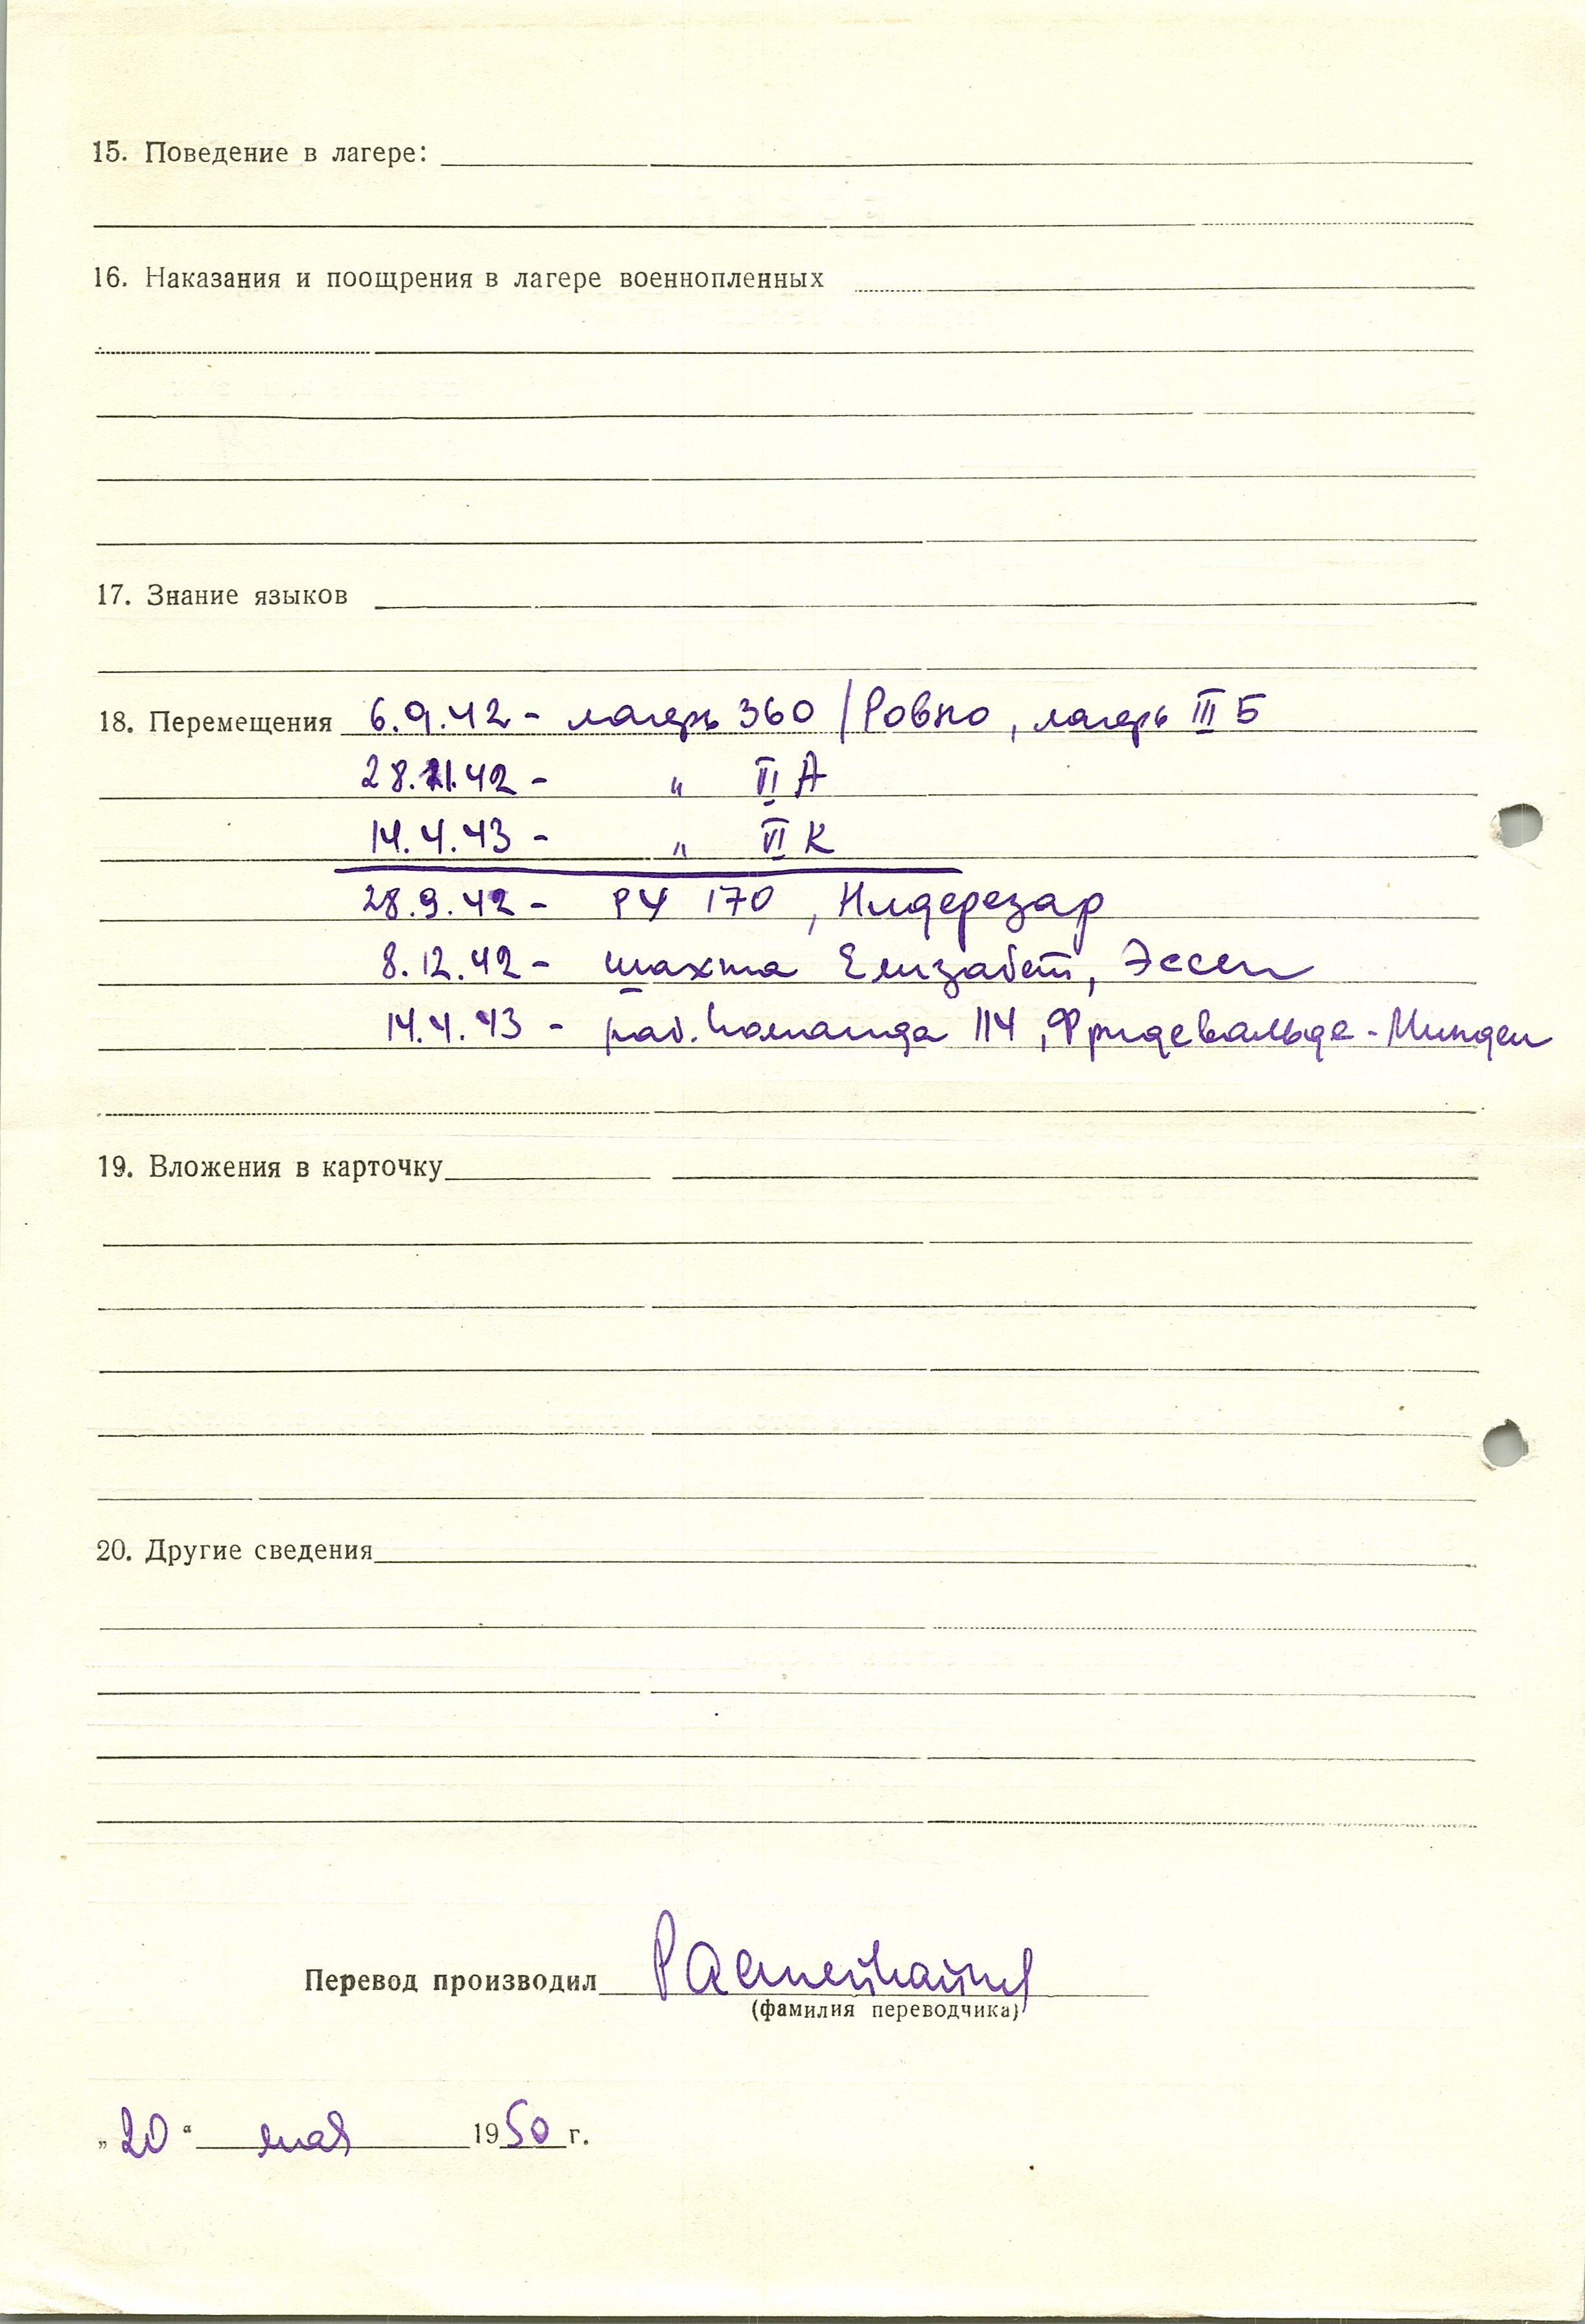 15. Поведение в лагере:
16. Наказания и поощрения в лагере военнопленных
17. Знание языков
18. Перемещения 6.9.42 - лагерь 360 /Ровно, лагерь III Б
28.11.42 - " VI А
14.4.43 - " VI К
28.9.42 - РУ 170, Нидерезар
8.12.42 - шахта Елизабет, Эссен
14.4.43 - раб. команда 114, Фридевальде-Минден
19. Вложения в карточку
20. Другие сведения
Перевод производил
(фамилия переводчика)
„20“ мая 1950 г.